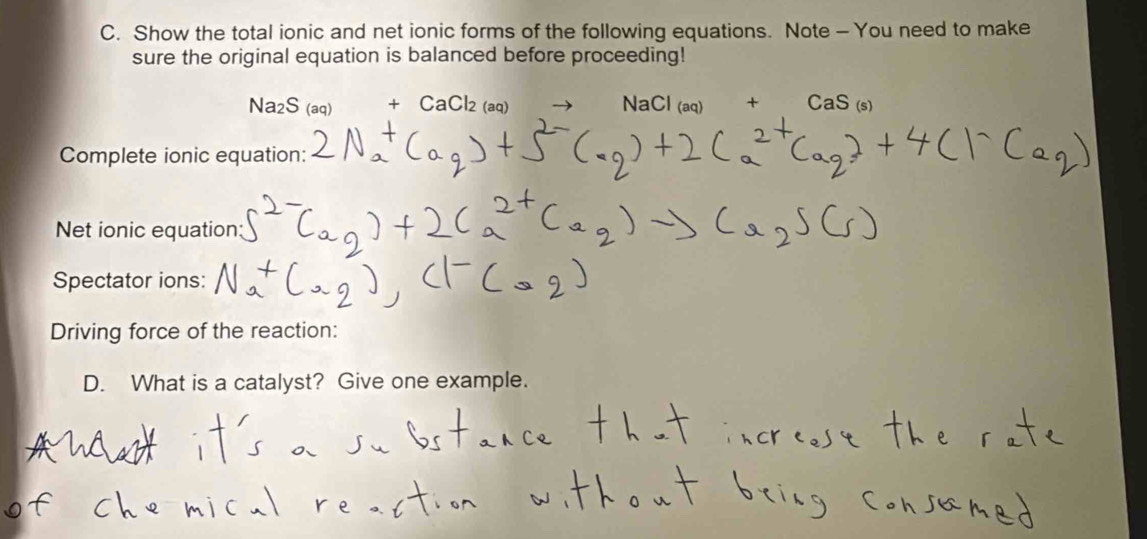 C. Show the total ionic and net ionic forms of the following equations. Note – You need to make
sure the original equation is balanced before proceeding!
Na₂S (aq) + CaCl₂ (aq) → NaCl (aq) + CaS (s)
Complete ionic equation: 2Na⁺(aq) + S²⁻(aq) + 2Ca²⁺(aq) + 4Cl⁻(aq)
Net ionic equation: S²⁻(aq) + 2Ca²⁺(aq) → Ca₂S(s)
Spectator ions: Na⁺(aq), Cl⁻(aq)
Driving force of the reaction:
D. What is a catalyst? Give one example.
it's a substance that increase the rate
of chemical reaction without being consumed